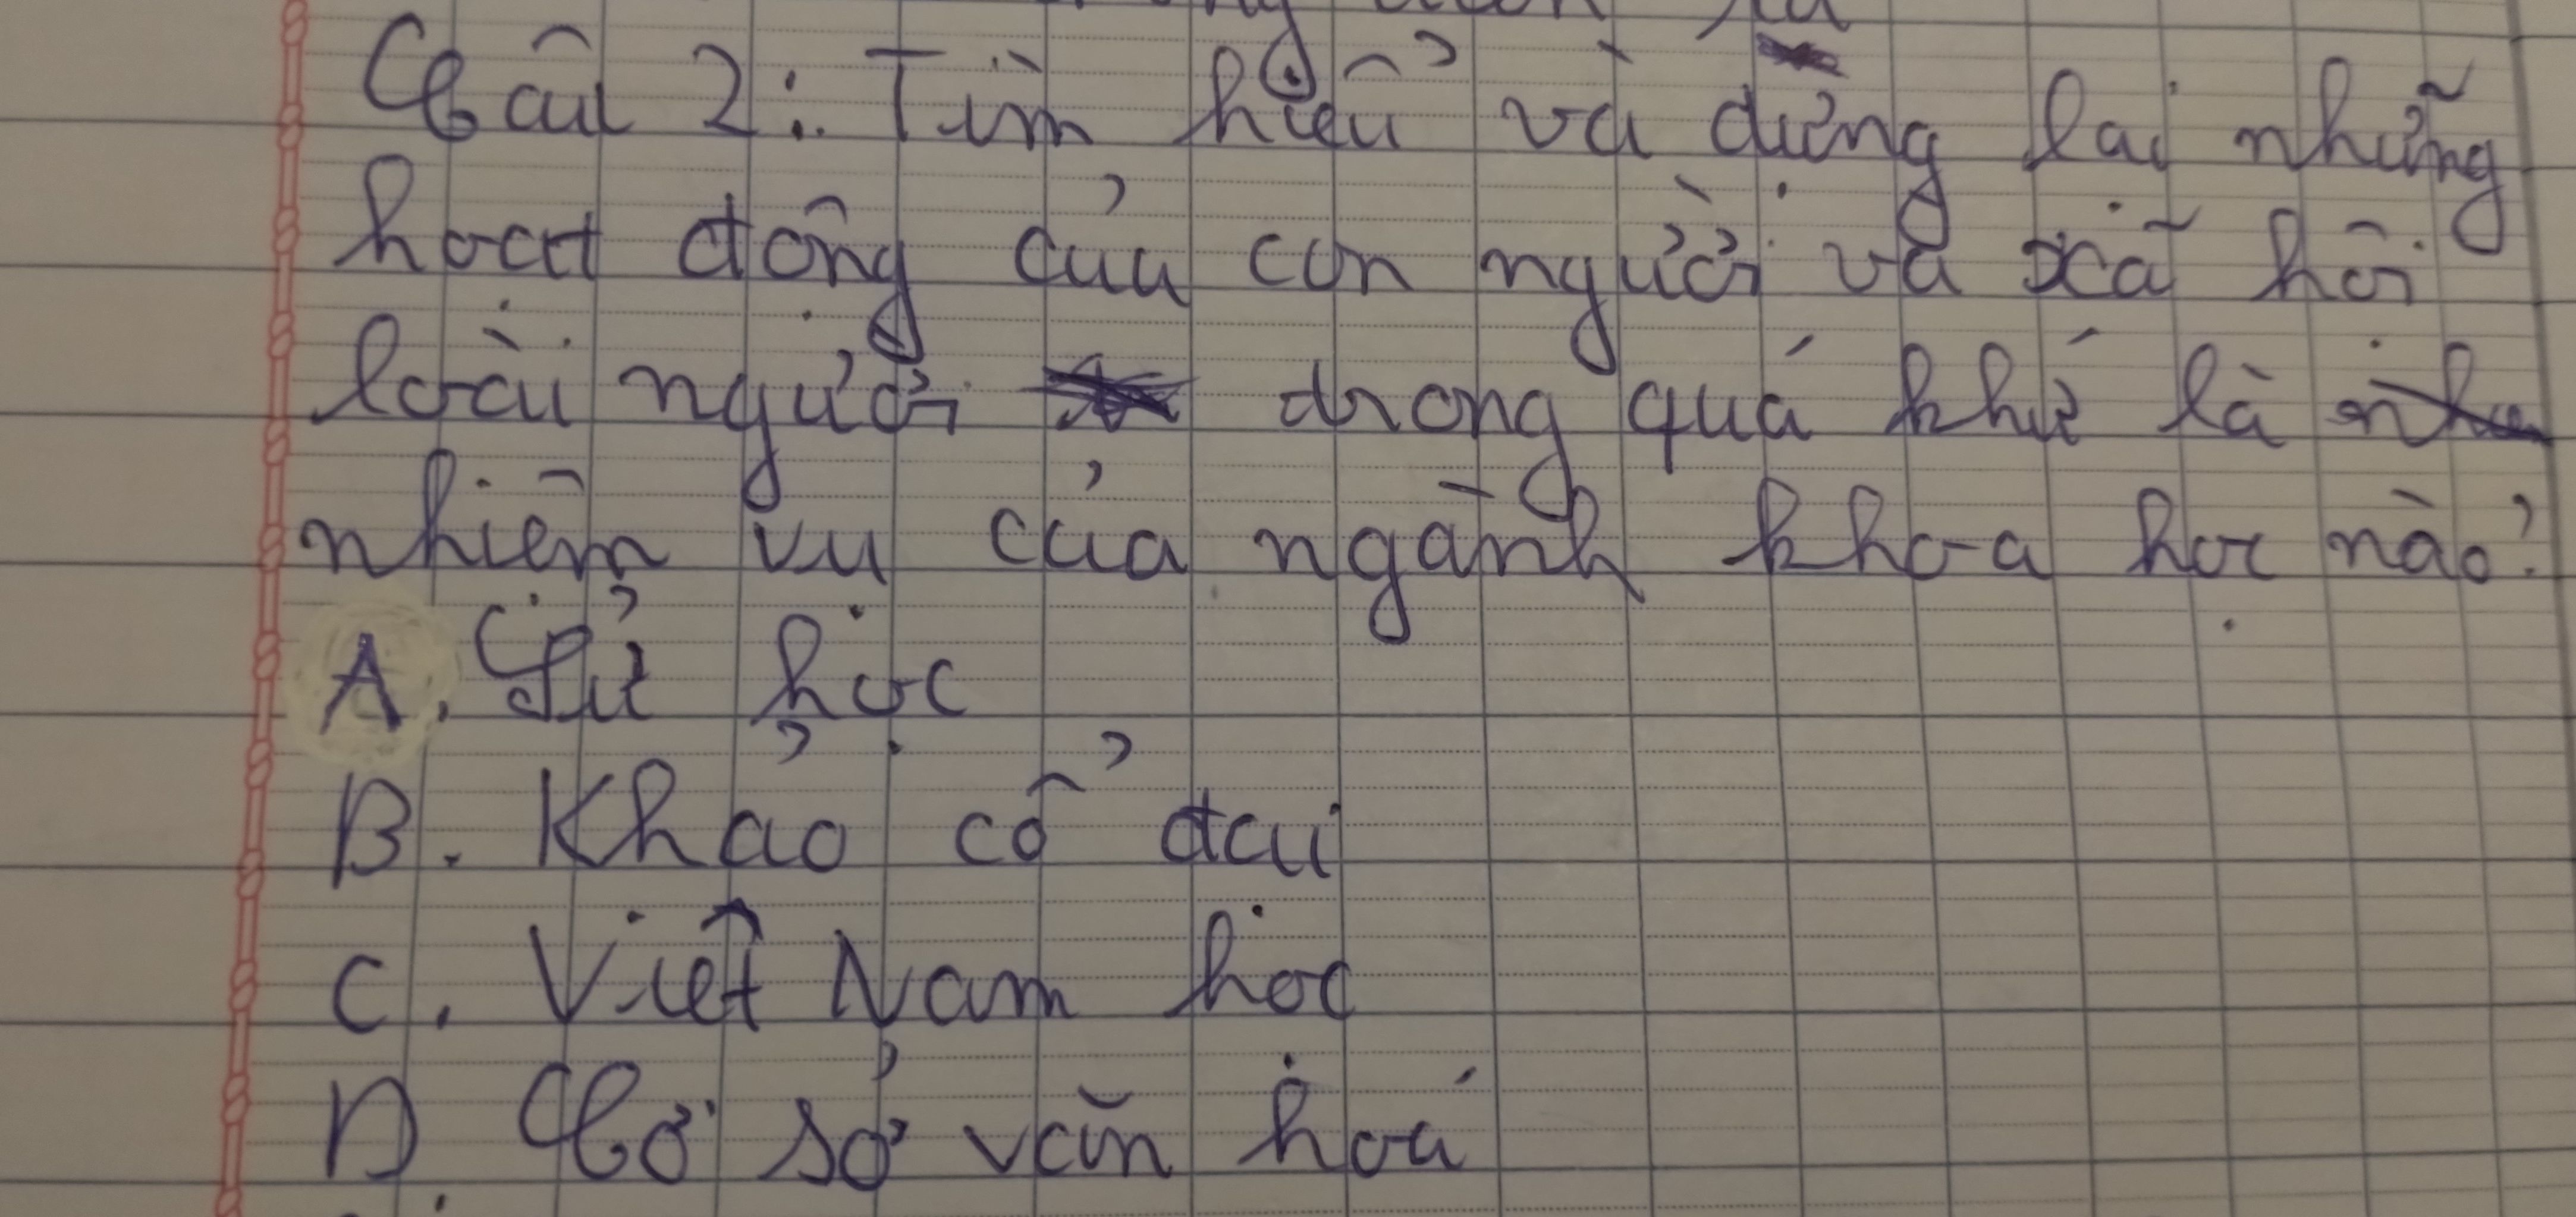 Câu 2: Tìm hiểu và dựng lại những
hoạt động của con người và xã hội
loài người trong quá khứ là
nhiệm vụ của ngành khoa học nào?
A. Sử học
B. Khảo cổ đại
C. Việt Nam học
D. Cơ sở văn hoá